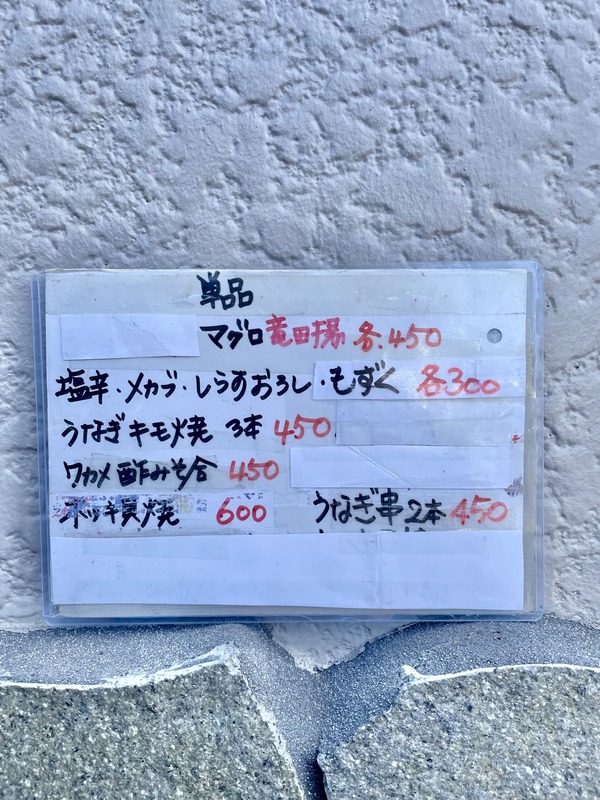 単品
マグロ竜田揚 各.450
塩辛・メカブ・しらすおろし・もずく 各300
うなぎキモ焼 3本 450
ワカメ酢みそ合 450
ホッキ貝焼 600 うなぎ串2本 450